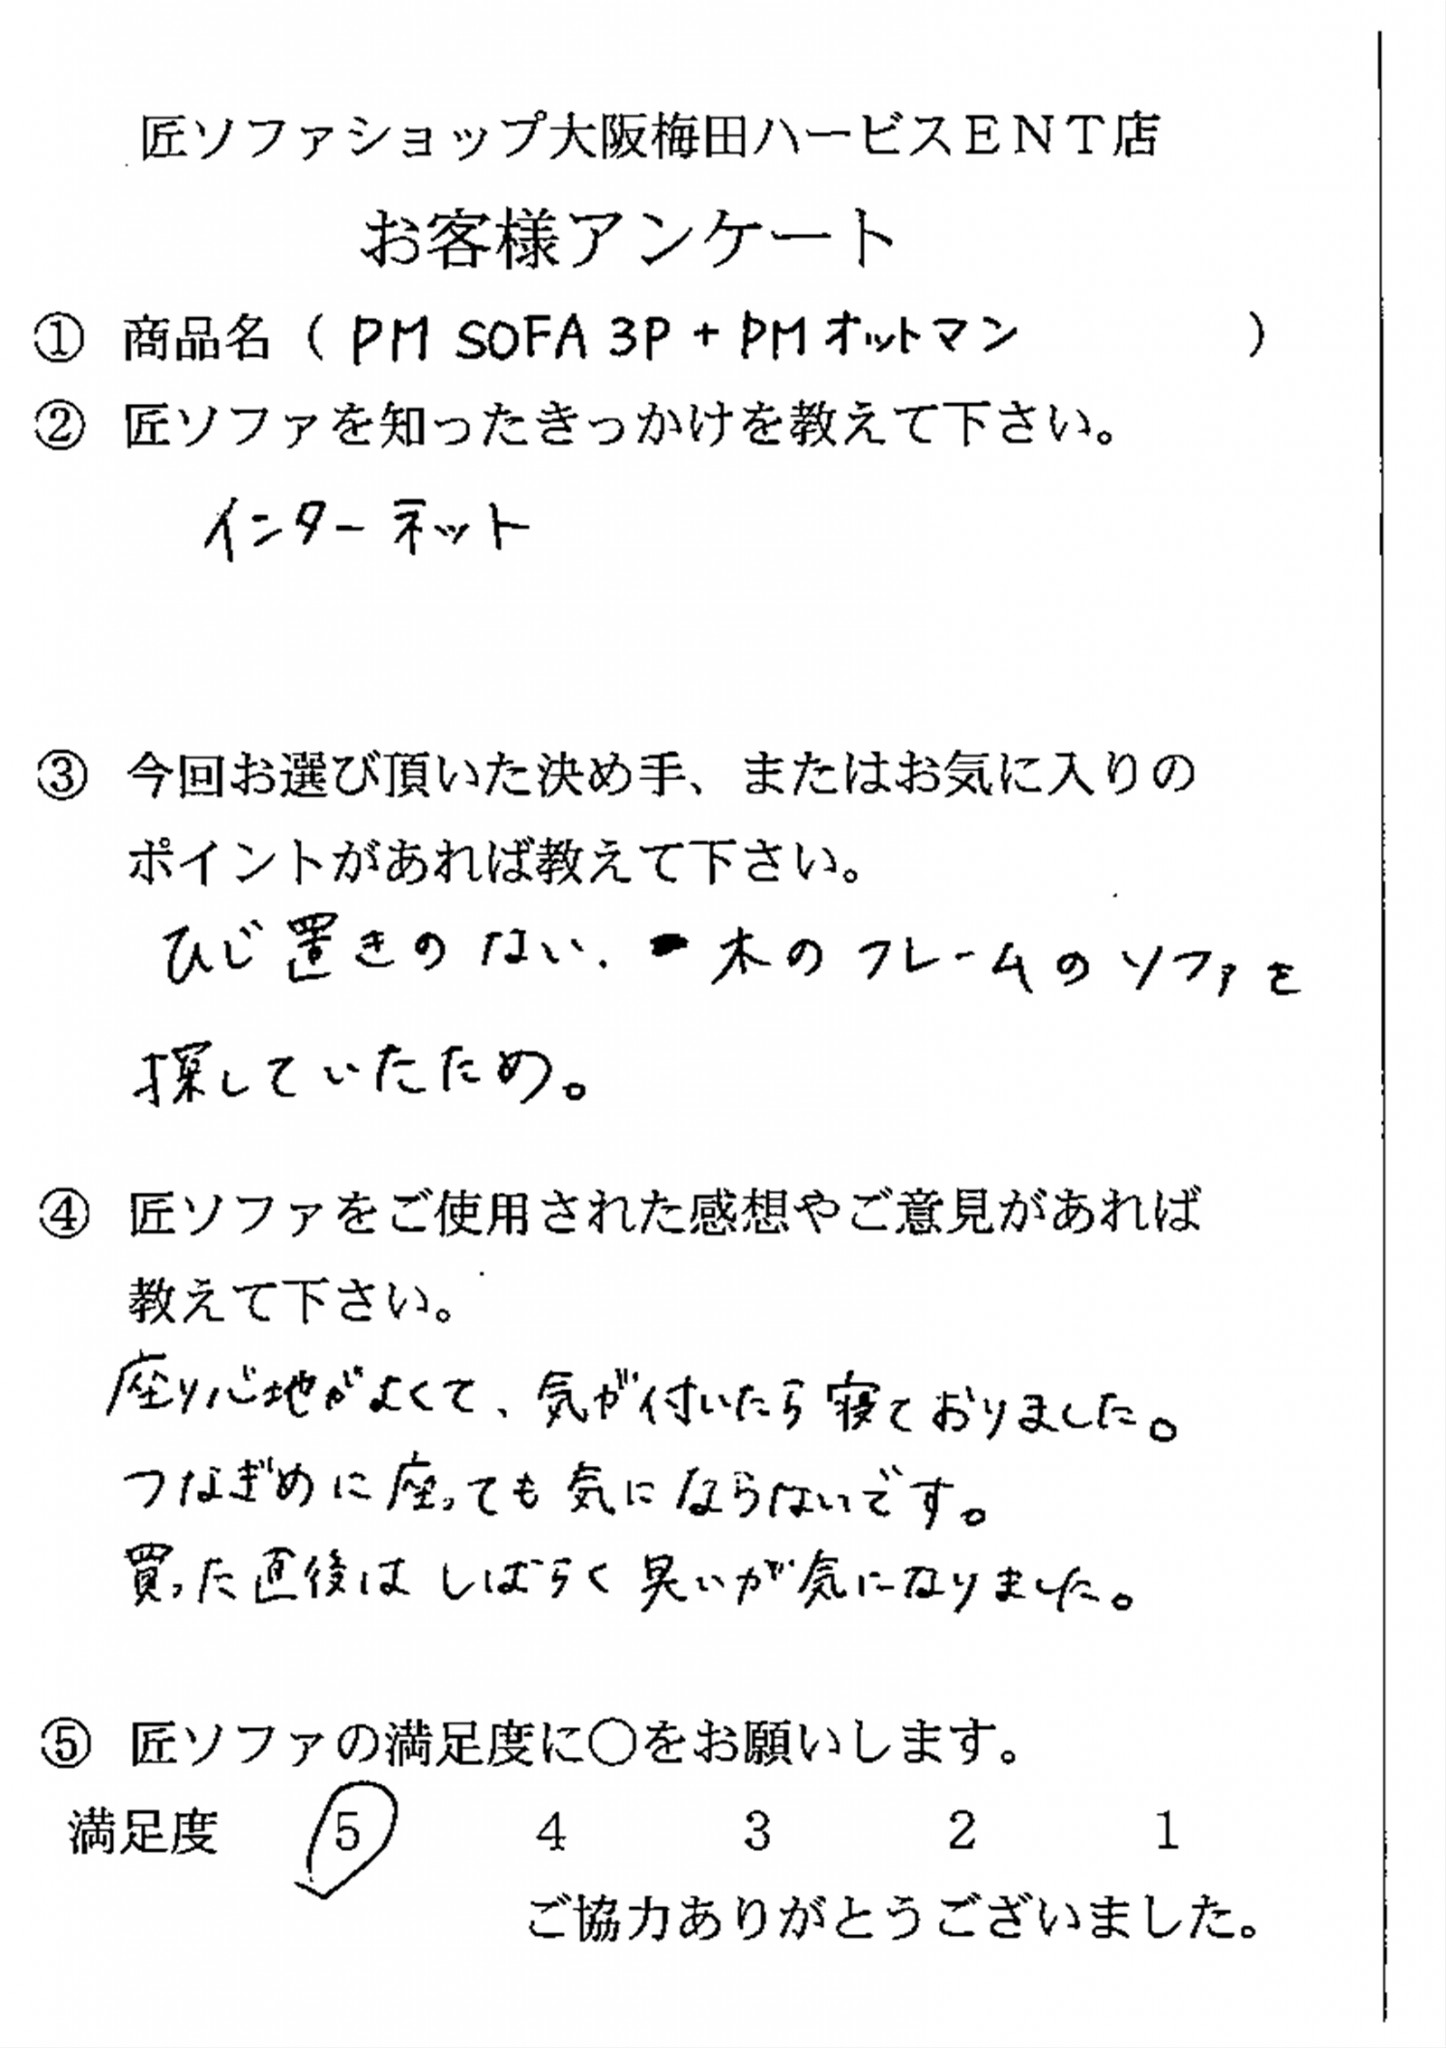 匠ソファショップ大阪梅田ハービスＥＮＴ店
お客様アンケート
① 商品名（ PM SOFA 3P + PMオットマン ）
② 匠ソファを知ったきっかけを教えて下さい。
インターネット
③ 今回お選び頂いた決め手、またはお気に入りの
ポイントがあれば教えて下さい。
ひじ置きのない、木のフレームのソファを
探していたため。
④ 匠ソファをご使用された感想やご意見があれば
教えて下さい。
座り心地がよくて、気が付いたら寝ておりました。
つなぎめに座っても気にならないです。
買った直後はしばらく臭いが気になりました。
⑤ 匠ソファの満足度に○をお願いします。
満足度 5 4 3 2 1
ご協力ありがとうございました。